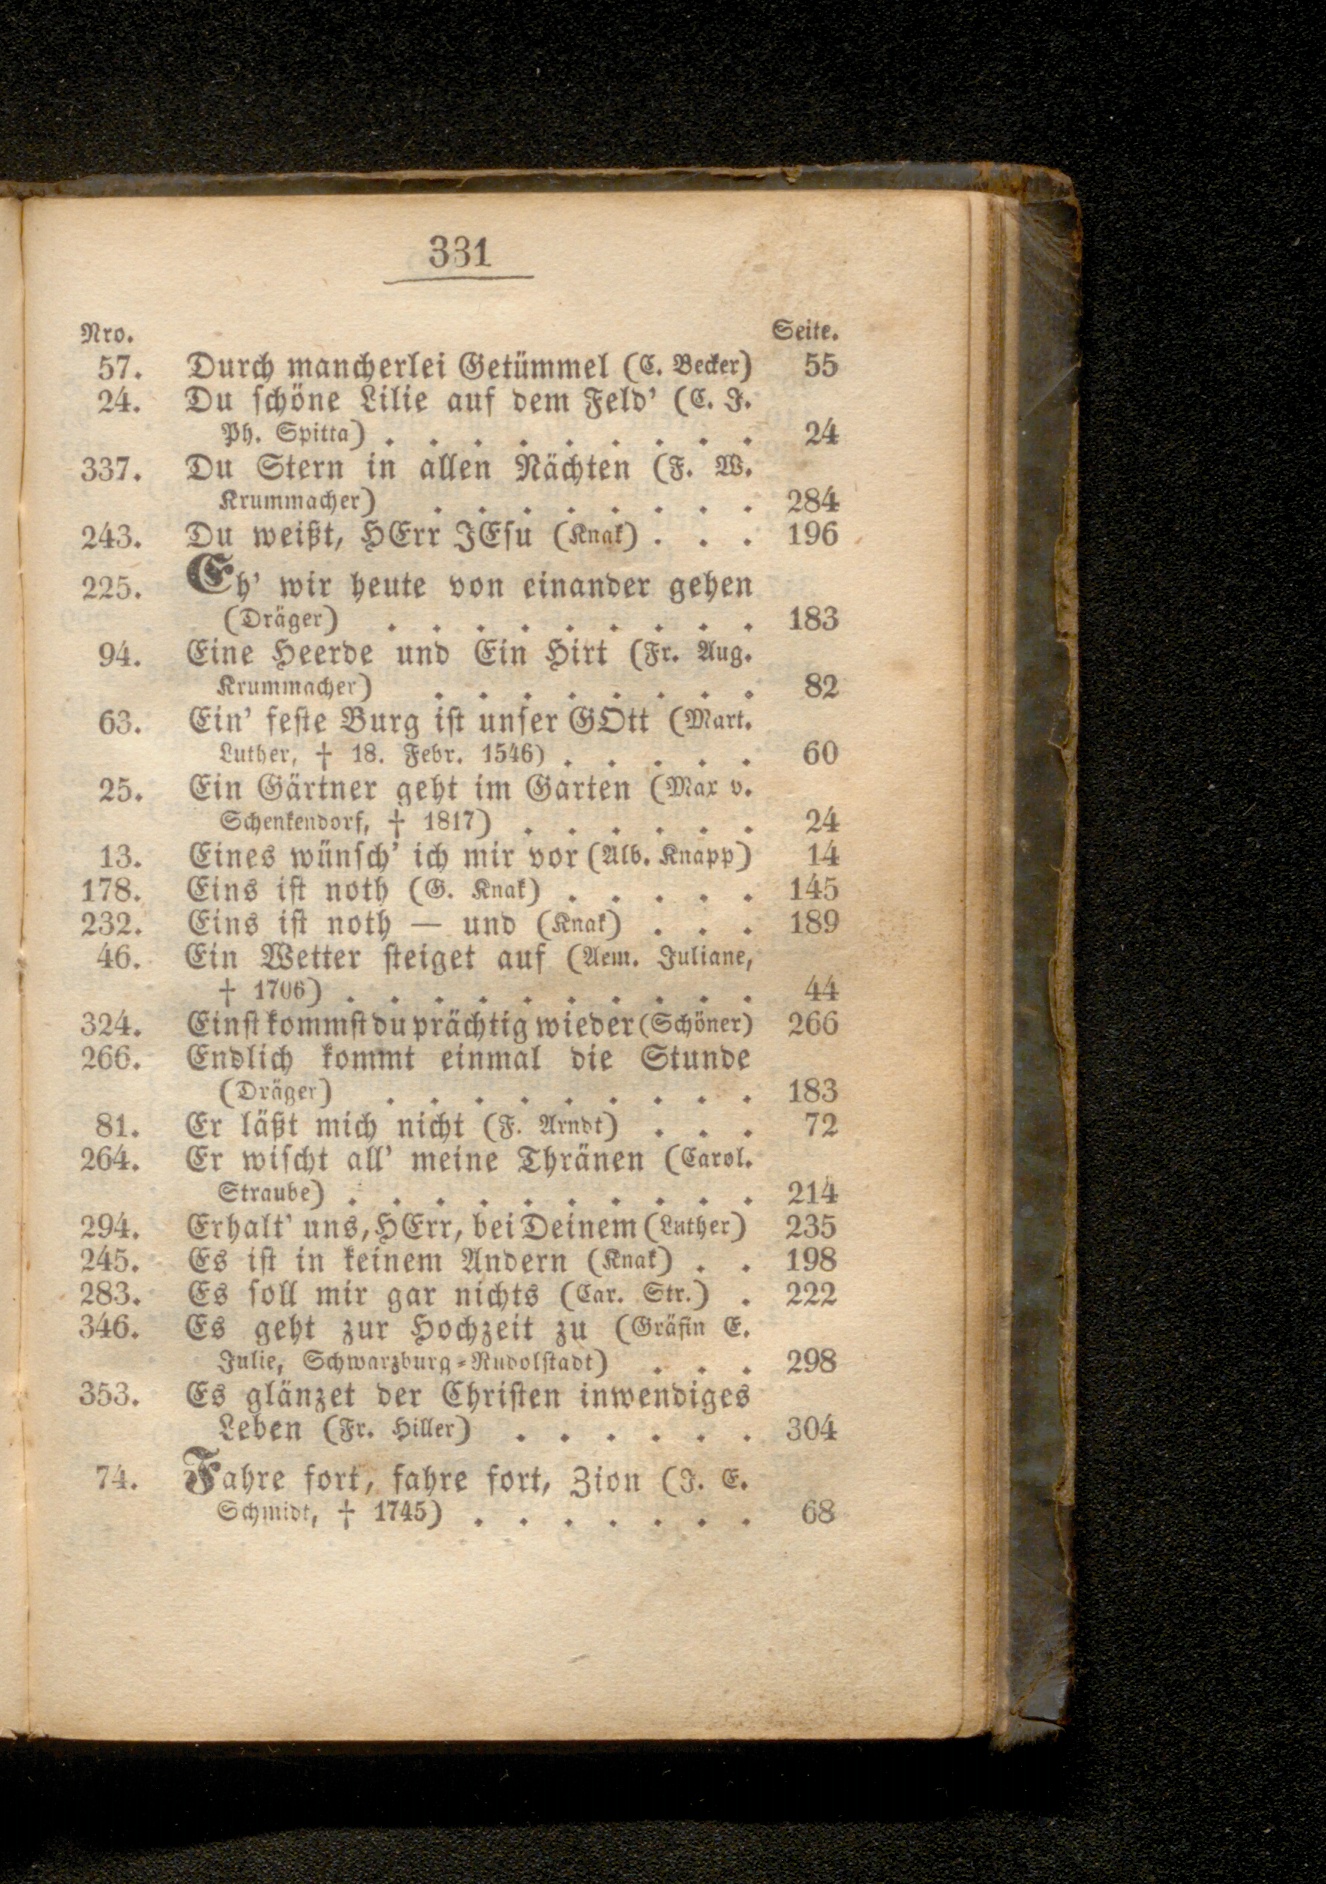 331
Nro. Seite.
57. Durch mancherlei Getümmel (C. Becker) 55
24. Du schöne Lilie auf dem Feld' (C. J.
Ph. Spitta) . . . . . . . . . 24
337. Du Stern in allen Nächten (F. W.
Krummacher) . . . . . . . . 284
243. Du weißt, HErr JEsu (Knak) . . . 196
225. Eh' wir heute von einander gehen
(Dräger) . . . . . . . . . 183
94. Eine Heerde und Ein Hirt (Fr. Aug.
Krummacher) . . . . . . . . 82
63. Ein' feste Burg ist unser GOtt (Mart.
Luther, † 18. Febr. 1546) . . . . . 60
25. Ein Gärtner geht im Garten (Max v.
Schenkendorf, † 1817) . . . . . . 24
13. Eines wünsch' ich mir vor (Alb. Knapp) 14
178. Eins ist noth (G. Knak) . . . . . 145
232. Eins ist noth — und (Knak) . . . 189
46. Ein Wetter steiget auf (Aem. Juliane,
† 1706) . . . . . . . . . . 44
324. Einst kommst du prächtig wieder (Schöner) 266
266. Endlich kommt einmal die Stunde
(Dräger) . . . . . . . . . 183
81. Er läßt mich nicht (F. Arndt) . . . 72
264. Er wischt all' meine Thränen (Carol.
Straube) . . . . . . . . . . 214
294. Erhalt' uns, HErr, bei Deinem (Luther) 235
245. Es ist in keinem Andern (Knak) . . 198
283. Es soll mir gar nichts (Car. Str.) . 222
346. Es geht zur Hochzeit zu (Gräfin E.
Julie, Schwarzburg-Rudolstadt) . . . 298
353. Es glänzet der Christen inwendiges
Leben (Fr. Hiller) . . . . . . 304
74. Fahre fort, fahre fort, Zion (J. E.
Schmidt, † 1745) . . . . . . . 68